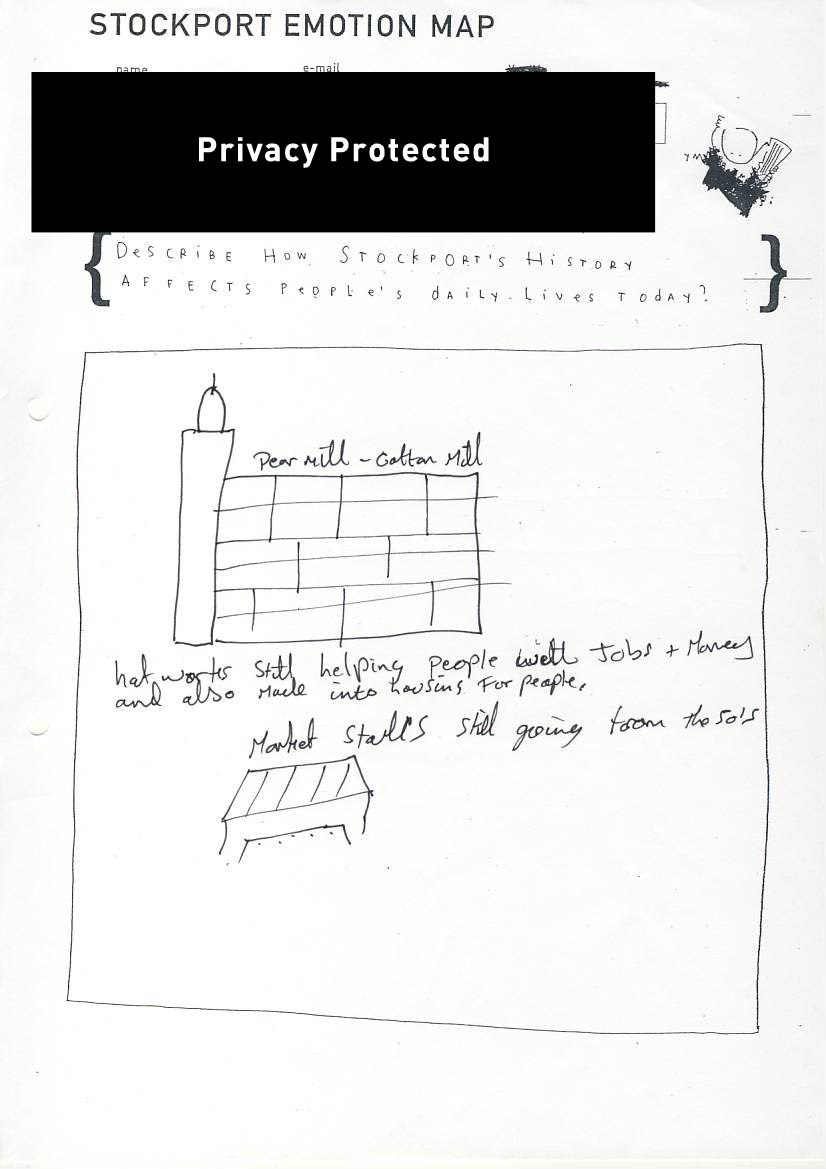 STOCKPORT EMOTION MAP
name e-mail
Privacy Protected
DeSCRiBE HOW STOCKPORT'S HiSTORY
AFFECTS PeOPLe'S dAiLY Lives TOdAY?
Pear Mill - Cotton Mill
hat works Still helping people with Jobs + Money
and also Made into housing For people.
Market Stalls still going from the 50's